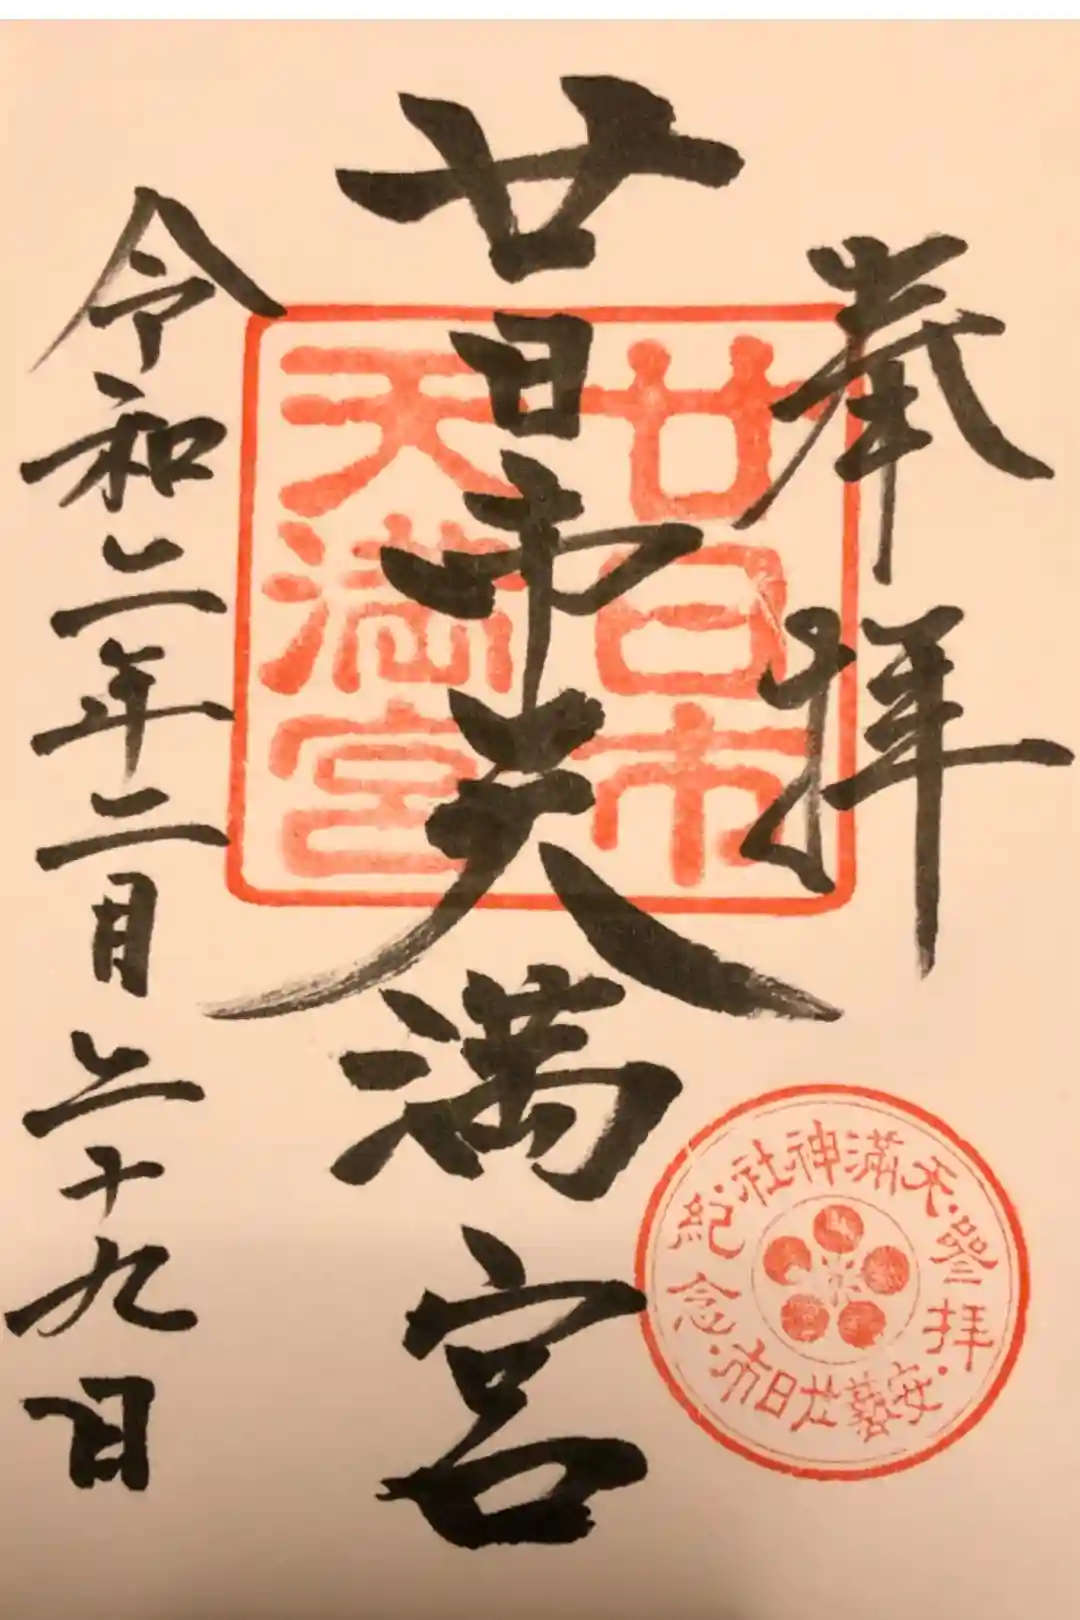 奉拝
廿日市天満宮
令和二年二月二十九日
廿日市
天満宮
天滿神社
參拝
紀念
安藝廿日市